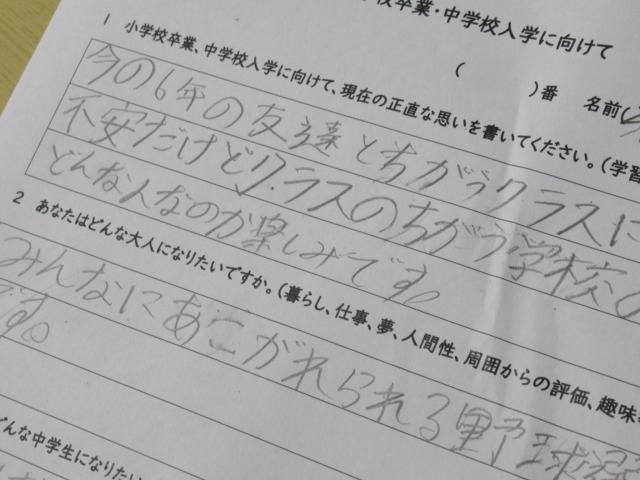 校卒業・中学校入学に向けて
( )番 名前
1 小学校卒業、中学校入学に向けて、現在の正直な思いを書いてください。(学習
今の6年の友達とちがうクラスに
不安だけどクラスのちがう学校の
どんな人なのか楽しみです。
2 あなたはどんな大人になりたいですか。(暮らし、仕事、夢、人間性、周囲からの評価、趣味
みんなにあこがれられる野球選
です。
どんな中学生になりたい